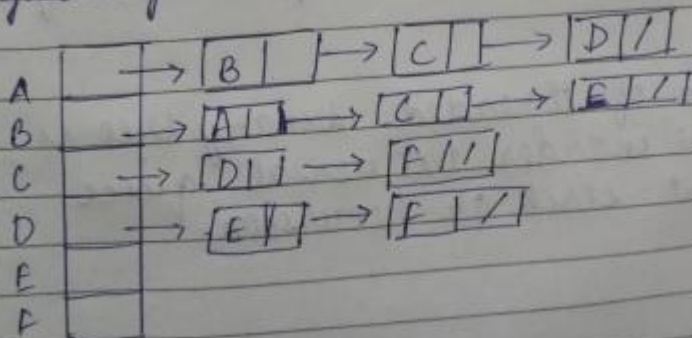 A → B → C → D /
B → A → C → E /
C → D → F /
D → E → F /
E
F